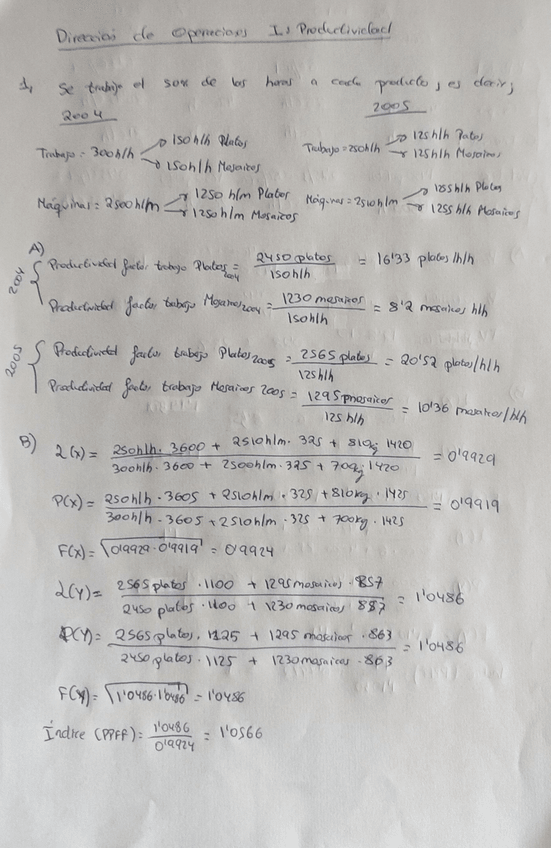 Dirección de Operaciones I: Productividad
1, Se trabaja el 50% de las horas a cada producto, es decir;
2004 2005
Trabajo = 300h/h → 150h/h Platos
→ 150h/h Mosaicos
Trabajo = 250h/h → 125h/h Platos
→ 125h/h Mosaicos
Máquinas = 2500h/m → 1250 h/m Platos
→ 1250 h/m Mosaicos
Máquinas = 2510h/m → 1255h/h Platos
→ 1255 h/h Mosaicos
A)
2004
Productividad factor trabajo Platos 2004 = 2450 platos / 150h/h = 16'33 platos/h/h
Productividad factor trabajo Mosaicos 2004 = 1230 mosaicos / 150h/h = 8'2 mosaicos h/h
2005
Productividad factor trabajo Platos 2005 = 2565 platos / 125h/h = 20'52 platos/h/h
Productividad factor trabajo Mosaicos 2005 = 1295 mosaicos / 125 h/h = 10'36 mosaicos/h/h
B) L(X) = 250h/h · 3600 + 2510h/m · 325 + 810kg · 1420 / 300h/h · 3600 + 2500h/m · 325 + 700kg · 1420 = 0'9929
P(X) = 250h/h · 3605 + 2510h/m · 325 + 810kg · 1425 / 300h/h · 3605 + 2510h/m · 325 + 700kg · 1425 = 0'9919
F(X) = √0'9929 · 0'9919 = 0'9924
L(Y) = 2565 platos · 1100 + 1295 mosaicos · 857 / 2450 platos · 1100 + 1230 mosaicos 857 = 1'0486
P(Y) = 2565 platos · 1125 + 1295 mosaicos · 863 / 2450 platos · 1125 + 1230 mosaicos · 863 = 1'0486
F(Y) = √1'0486 · 1'0486 = 1'0486
Índice (PPFF) = 1'0486 / 0'9924 = 1'0566